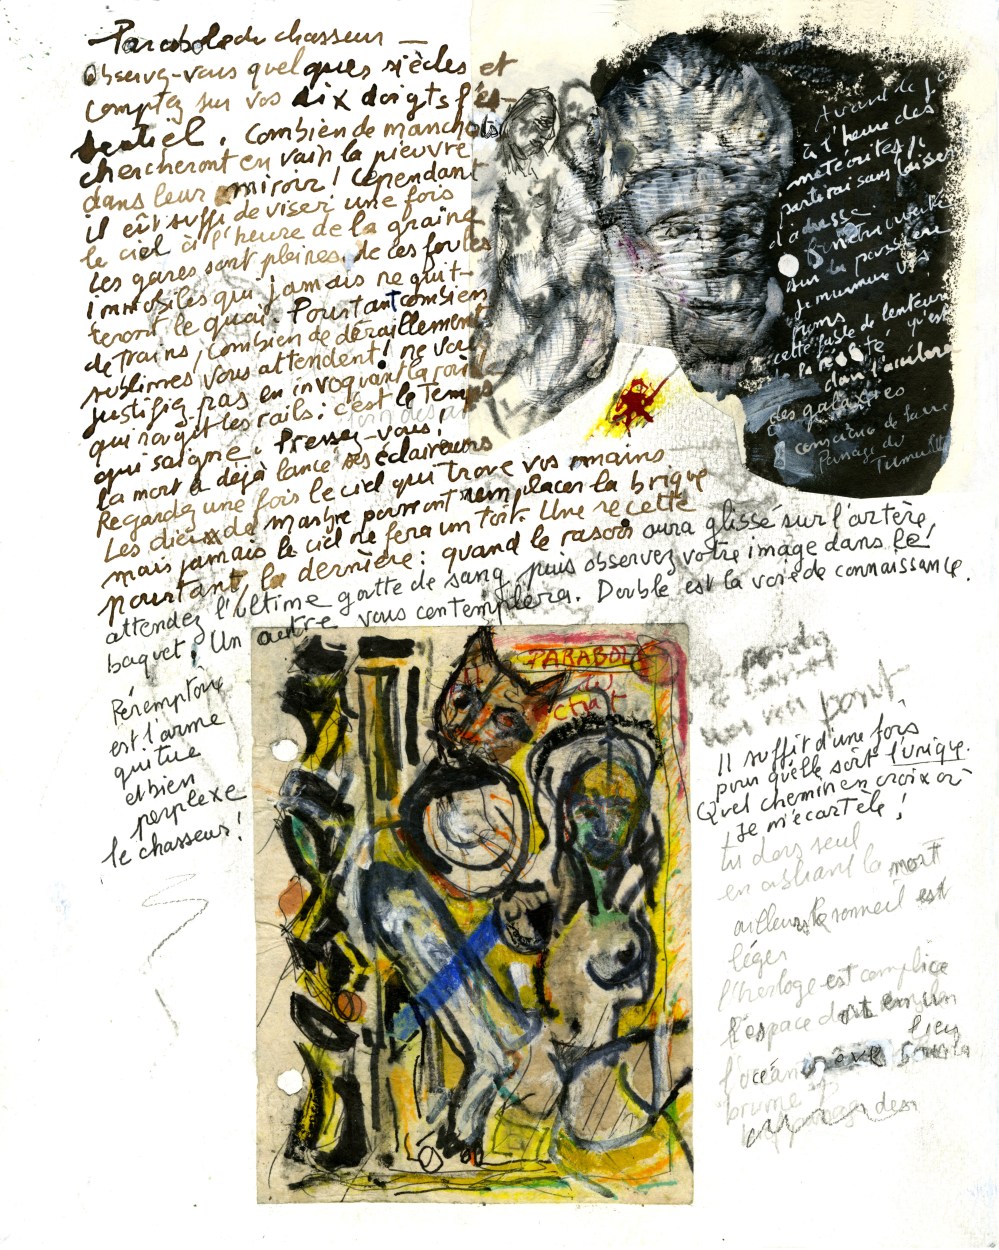 Parabole du chasseur —
Observez-vous quelques siècles et
comptez sur vos dix doigts l'es-
sentiel. Combien de manchots
chercheront en vain la pieuvre
dans leur miroir ! Cependant
il eût suffi de viser une fois
le ciel à l'heure de la graine
Les gares sont pleines de ces foules
immobiles qui jamais ne quit-
teront le quai. Pourtant combien
de trains, combien de déraillements
sublimes vous attendent ! ne vous
justifiez pas en invoquant la rouille
qui rougit les rails : c'est le Temps
qui saigne. Pressez-vous !
la mort a déjà lancé ses éclaireurs
Regardez une fois le ciel qui troue vos mains
Les dieux de marbre pourront remplacer la brique
mais jamais le ciel ne fera un toit. Une recette
pourtant, la dernière : quand le rasoir aura glissé sur l'artère,
attendez l'ultime goutte de sang, puis observez votre image dans le
baquet. Un autre vous contemplera. Double est la voie de connaissance.
Avant de
à l'heure des
météorites, je
partirai sans laisser
d'adresse.
sur la poussière
je murmure vos
noms
cette faste de lenteur
des galaxies
conscience de
Passage du
Tumulte
PARABOLE
du
chat
Péremptoire
est l'arme
qui tue
et bien
perplexe
le chasseur !
point
Il suffit d'une fois
pour qu'elle soit l'unique.
Quel chemin en croix où
Je m'écartèle !
tu dors seul
en la mort
ailleurs le sommeil est
léger
l'horloge est complice
l'espace dort en un
lieu
l'océan rêve
brume
des